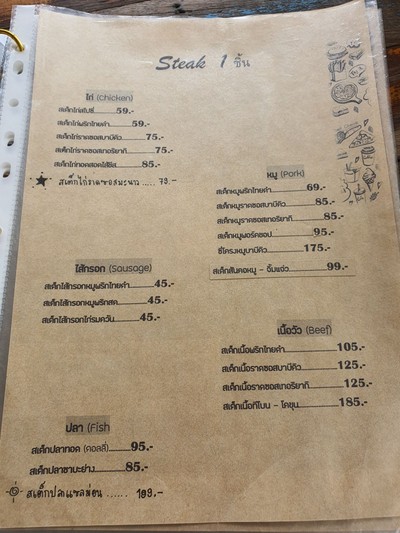 Steak 1 ชิ้น
ไก่ (Chicken)
สเต็กไก่สไปซี่..........59.-
สเต็กไก่พริกไทยดำ..........59.-
สเต็กไก่ราดซอสบาบีคิว..........75.-
สเต็กไก่ราดซอสเทอริยากิ..........75.-
สเต็กไก่ทอดสอดไส้ชีส..........85.-
สเต็กไก่ราดซอสมะนาว ..... 79.-
หมู (Pork)
สเต็กหมูพริกไทยดำ..........69.-
สเต็กหมูราดซอสบาบีคิว..........85.-
สเต็กหมูราดซอสเทอริยากิ..........85.-
สเต็กหมูพอร์คชอป..........95.-
ซี่โครงหมูบาบีคิว..........175.-
สเต็กสันคอหมู - จิ้มแจ่ว..........99.-
ไส้กรอก (Sausage)
สเต็กไส้กรอกหมูพริกไทยดำ..........45.-
สเต็กไส้กรอกหมูพริกสด..........45.-
สเต็กไส้กรอกไก่รมควัน..........45.-
เนื้อวัว (Beef)
สเต็กเนื้อพริกไทยดำ..........105.-
สเต็กเนื้อราดซอสบาบีคิว..........125.-
สเต็กเนื้อราดซอสเทอริยากิ..........125.-
สเต็กเนื้อทีโบน - โคขุน..........185.-
ปลา (Fish
สเต็กปลาทอด (ดอลลี่)..........95.-
สเต็กปลาซาบะย่าง..........85.-
สเต็กปลาแซลม่อน ...... 199.-